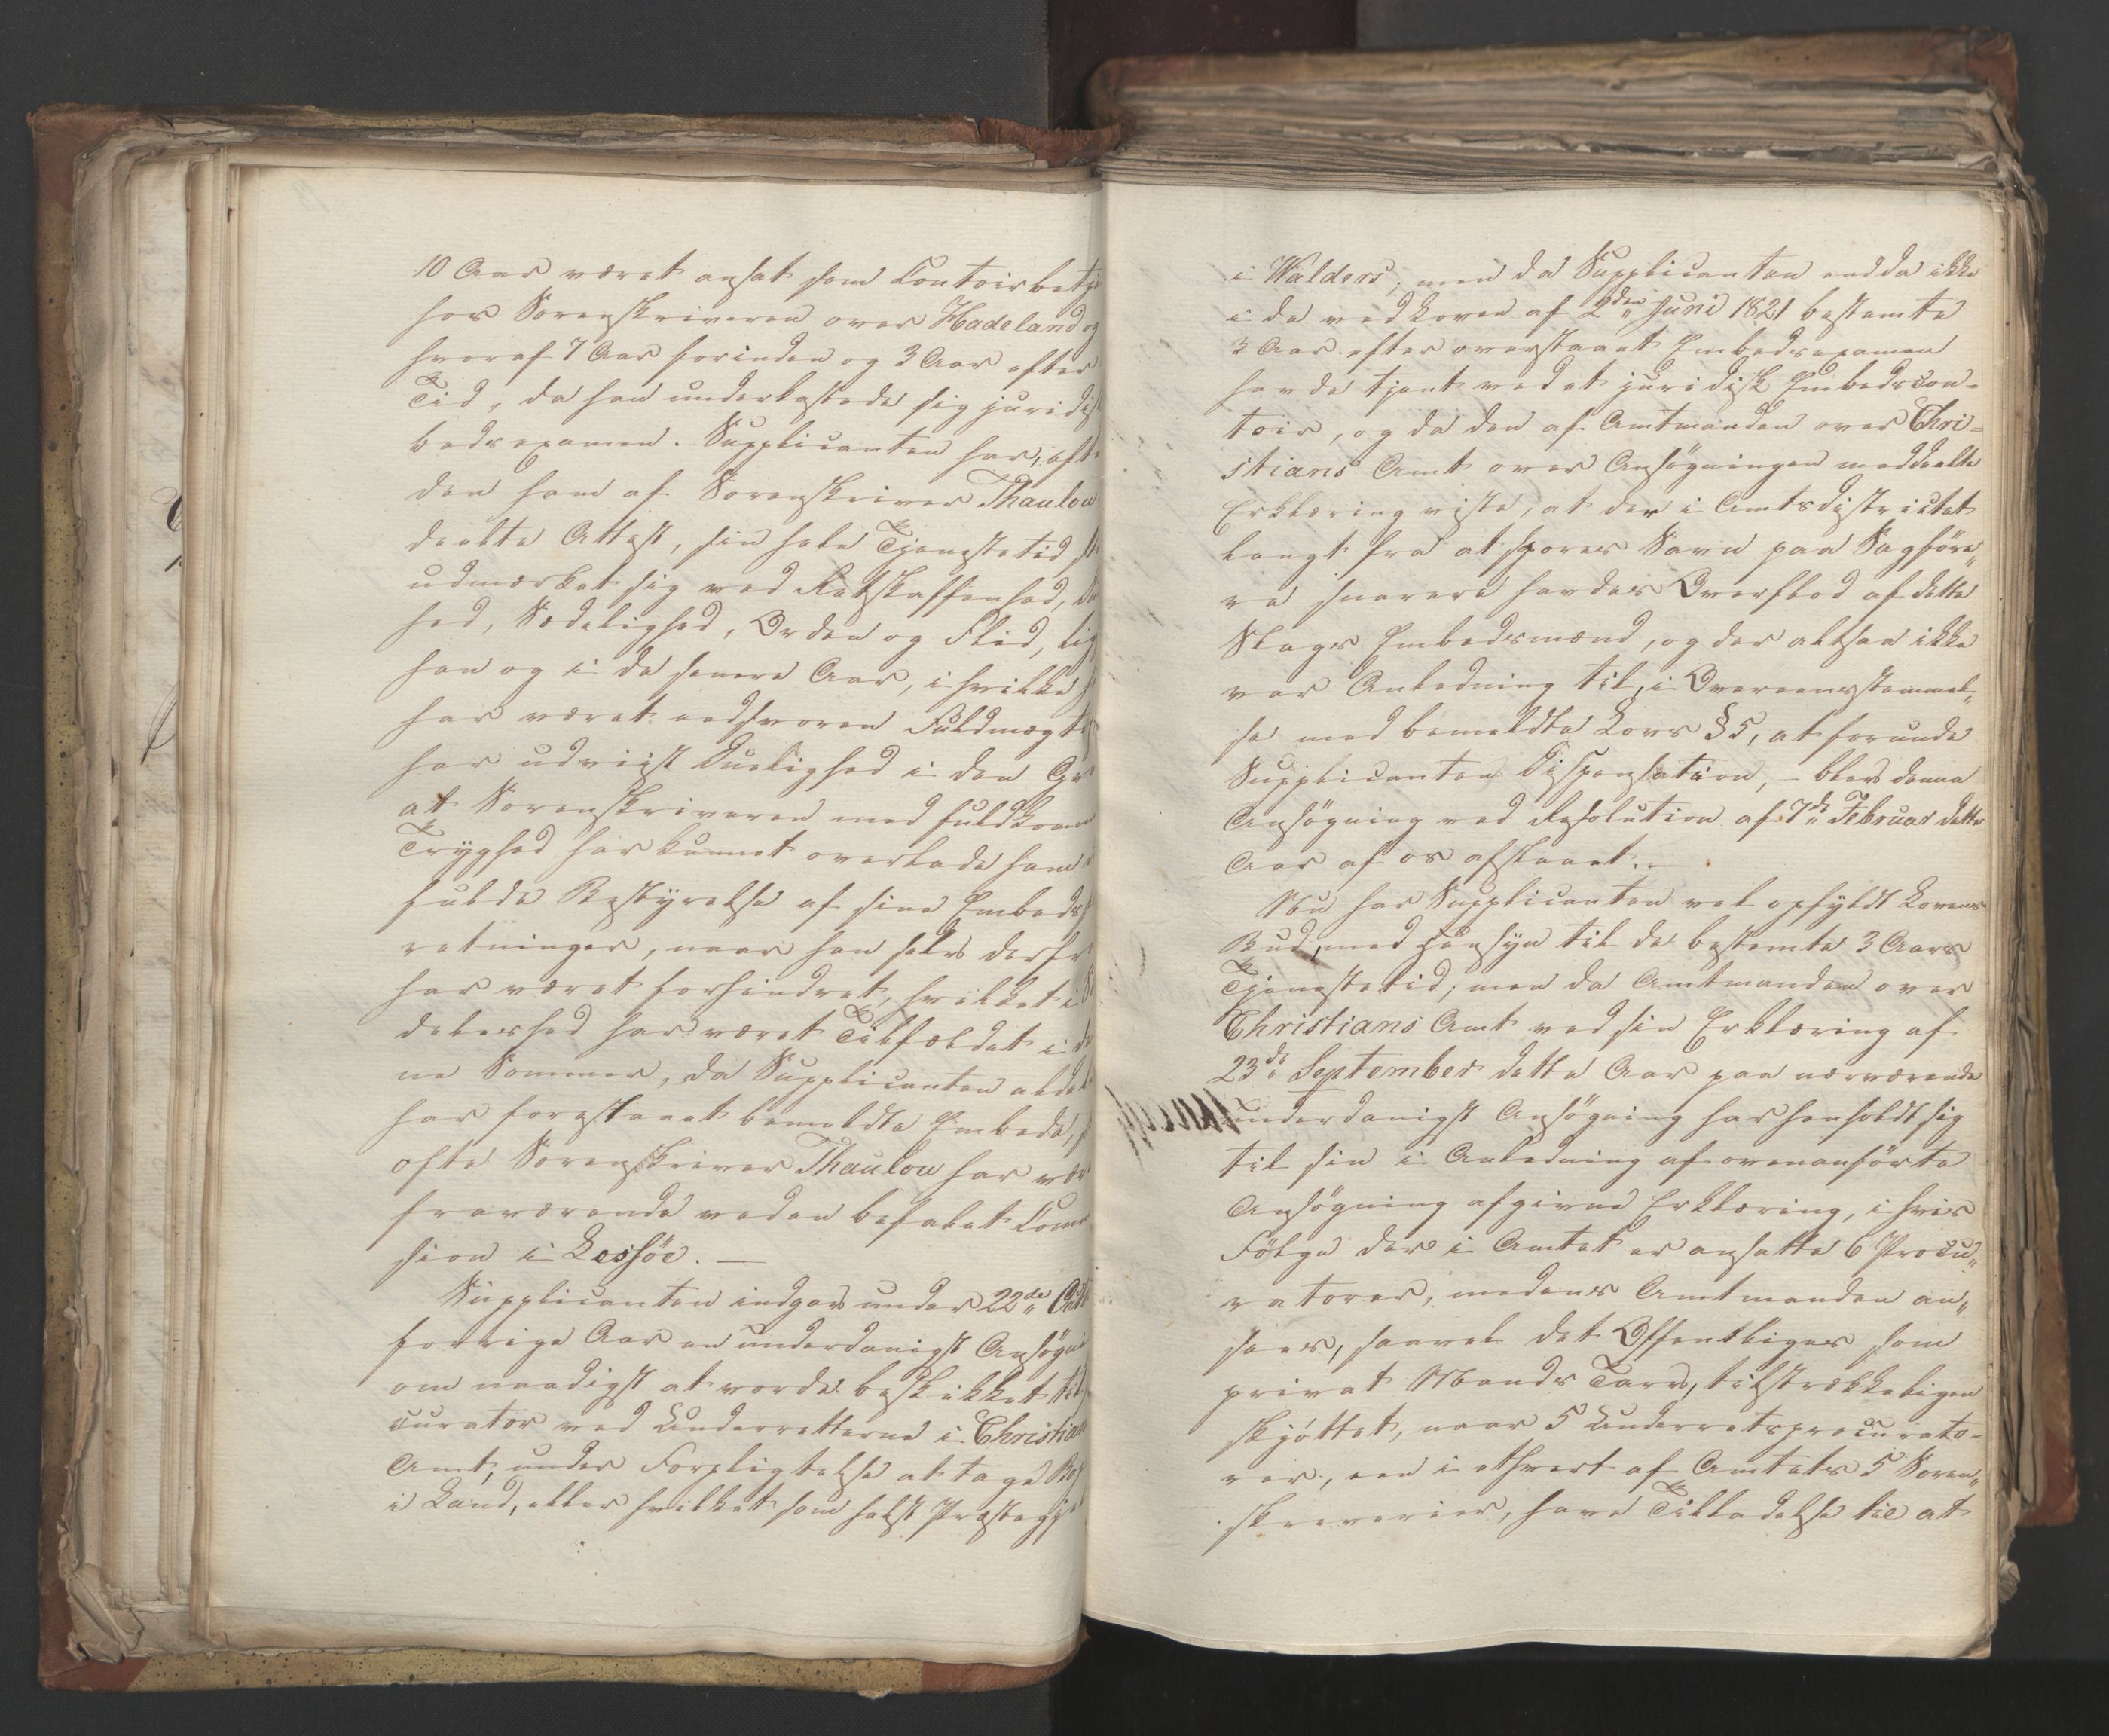 10 Aar været ansat som Contoirbetje
hos Sorenskriveren over Hadeland og
hvoraf 7 Aar forinden og 3 Aar efter
Tid, da han underkastede sig juridis
bedsexamen. Supplicanten har, eft
den ham af Sorenskriver Thaulow
deelte Attest, sin hele Tjenestetid st
udmærket sig ved Retskaffenhed,
hed, Sædelighed, Orden og Flid, lig
han og i de senere Aar, i hvilke h
har været eedsvoren Fuldmægt
har udviist Duelighed i den Gr
at Sorenskriveren med fuldkom
Tryghed har kunnet overlade ham
fulde Bestyrelse af sine Embeds
retninger, naar han selv derfr
har været forhindret, hvilket i
deleshed har været Tilfældet i de
ne Sommer, da Supplicanten alde
har forestaaet bemeldte Embede,
ofte Sorenskriver Thaulow har vær
fraværende ved en befalet Comm
sion i Lessöe. —
Supplicanten indgav under 22de Octb
forrige Aar en underdanigst Ansögni
om naadigst at vorde beskikket til
curator ved Underretterne i Christian
Amt, under Forpligtelse at tage Bop
i Land, eller hvilket som helst Præstegje
i Walders; men da Supplicanten endda ikke
i de ved Loven af 2den Juni 1821 bestemte
3 Aar efter overstaaet Embedsexamen
havde tjent ved et juridisk Embedscon-
toir, og da den af Amtmanden over Chri-
stians Amt over Ansögningen meddeelte
Erklæring viste, at der i Amtsdistrictet
langt fra at spores Savn paa Sagföre,,
re snarere havdes Overflod af dette
Slags Embedsmænd, og der altsaa ikke
var Anledning til, i Overeensstemmel,,
se med bemeldte Lovs § 5, at forunde
Supplicanten Dispensation, - blev denne
Ansögning ved Resolution af 7de Februar dette
Aar af os afslaaet. —
Nu har Supplicanten vel opfyldt Lovens
Bud, med Hensyn til de bestemte 3 Aars
Tjenestetid; men da Amtmanden over
Christians Amt ved sin Erklæring af
23de September dette Aar paa nærværende
underdanigst Ansögning har henholdt sig
til sin i Anledning af ovenanförte
Ansögning afgivne Erklæring, i hvis
Fölge der i Amtet er ansatte 6 Procu,,
ratorer, medens Amtmanden an,,
saaes, saavel det Offentliges som
privat Mands Tarv, tilstrækkeligen
skjöttet, naar 5 Underretsprocurato-
rer, een i ethvert af Amtets 5 Soren,,
skreverier, have Tilladelse til at